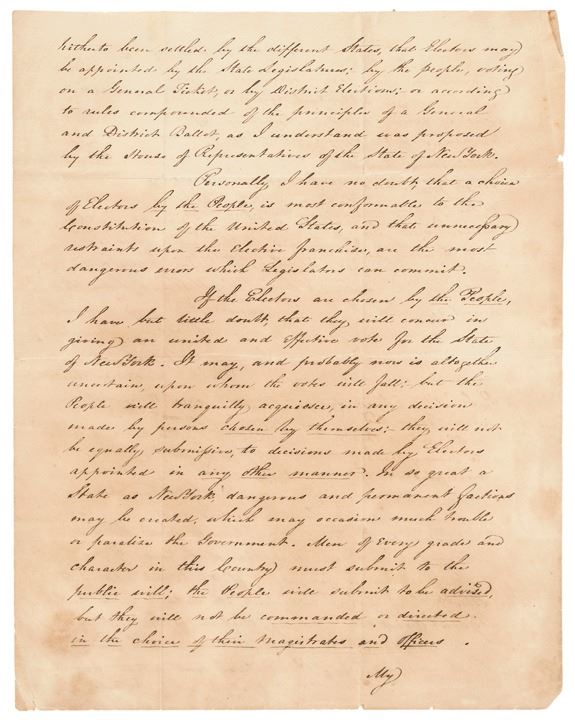 hitherto been settled by the different States, that Electors may
be appointed by the State Legislatures; by the people, voting
on a General Ticket, or by District Elections; or according
to rules compounded of the principles of a General
and District Ballot, as I understand was proposed
by the House of Representatives of the State of New York.
Personally, I have no doubt, that a choice
of Electors by the People, is most conformable to the
Constitution of the United States, and that unnecessary
restraints upon the Elective franchise, are the most
dangerous errors which Legislators can commit.
If the Electors are chosen by the People,
I have but little doubt that they will concur in
giving an united and effective vote for the State
of New York. It may, and probably now is altogether
uncertain, upon whom the votes will fall; but the
People will tranquilly acquiesce, in any decision
made by persons chosen by themselves; they will not
be equally submissive, to decisions made by Electors
appointed in any other manner. In so great a
State as New York, dangerous and permanent factions
may be created, which may occasion much trouble
or paralize the Government. Men of every grade and
character in this Country must submit to the
public will; the People will submit to be advised,
but they will not be commanded or directed
in the choice of their magistrates and officers.
My